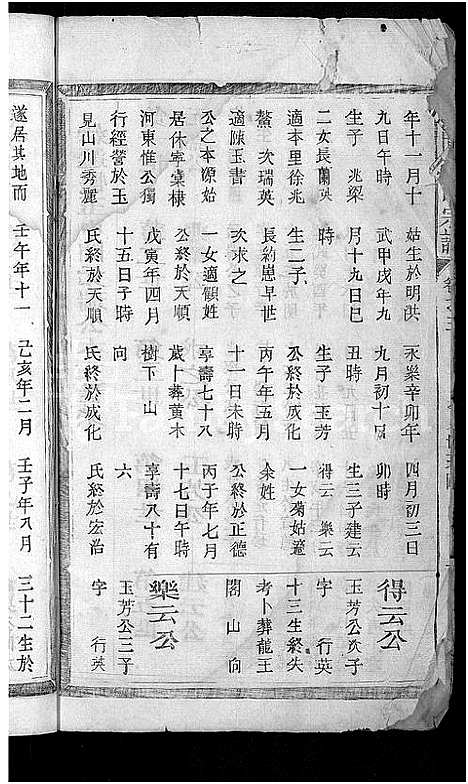 年十一月十
九日午時
生子 兆梁
二女長蘭英
適本里徐兆
鰲 次瑞英
適陳玉書
公之本源始
居休寧棠棣
河東惟公獨
行經營於玉
見山川秀麗
姑生於明洪
武甲戌年九
月十九日巳
時
生二子
長約患早世
次求之
一女適顧姓
公終於天順
戊寅年四月
十五日子時
氏終於天順
永樂辛卯年
九月初十日
丑時
生子 玉芳
公終於成化
丙午年五月
十一日未時
享壽七十八
歲卜葬黃木
樹下山
向
氏終於成化
四月初三日
卯時
生三子建云
得云 樂云
一女菊姑適
余姓
公終於正德
丙子年七月
十七日午時
享壽八十有
六
氏終於宏治
得云公
玉芳公次子
字 行英
十三生終失
考卜葬龍王
閣山向
樂云公
玉芳公三子
字 行英
遂居其地而
壬午年十一
己亥年二月
壬子年八月
三十二生於